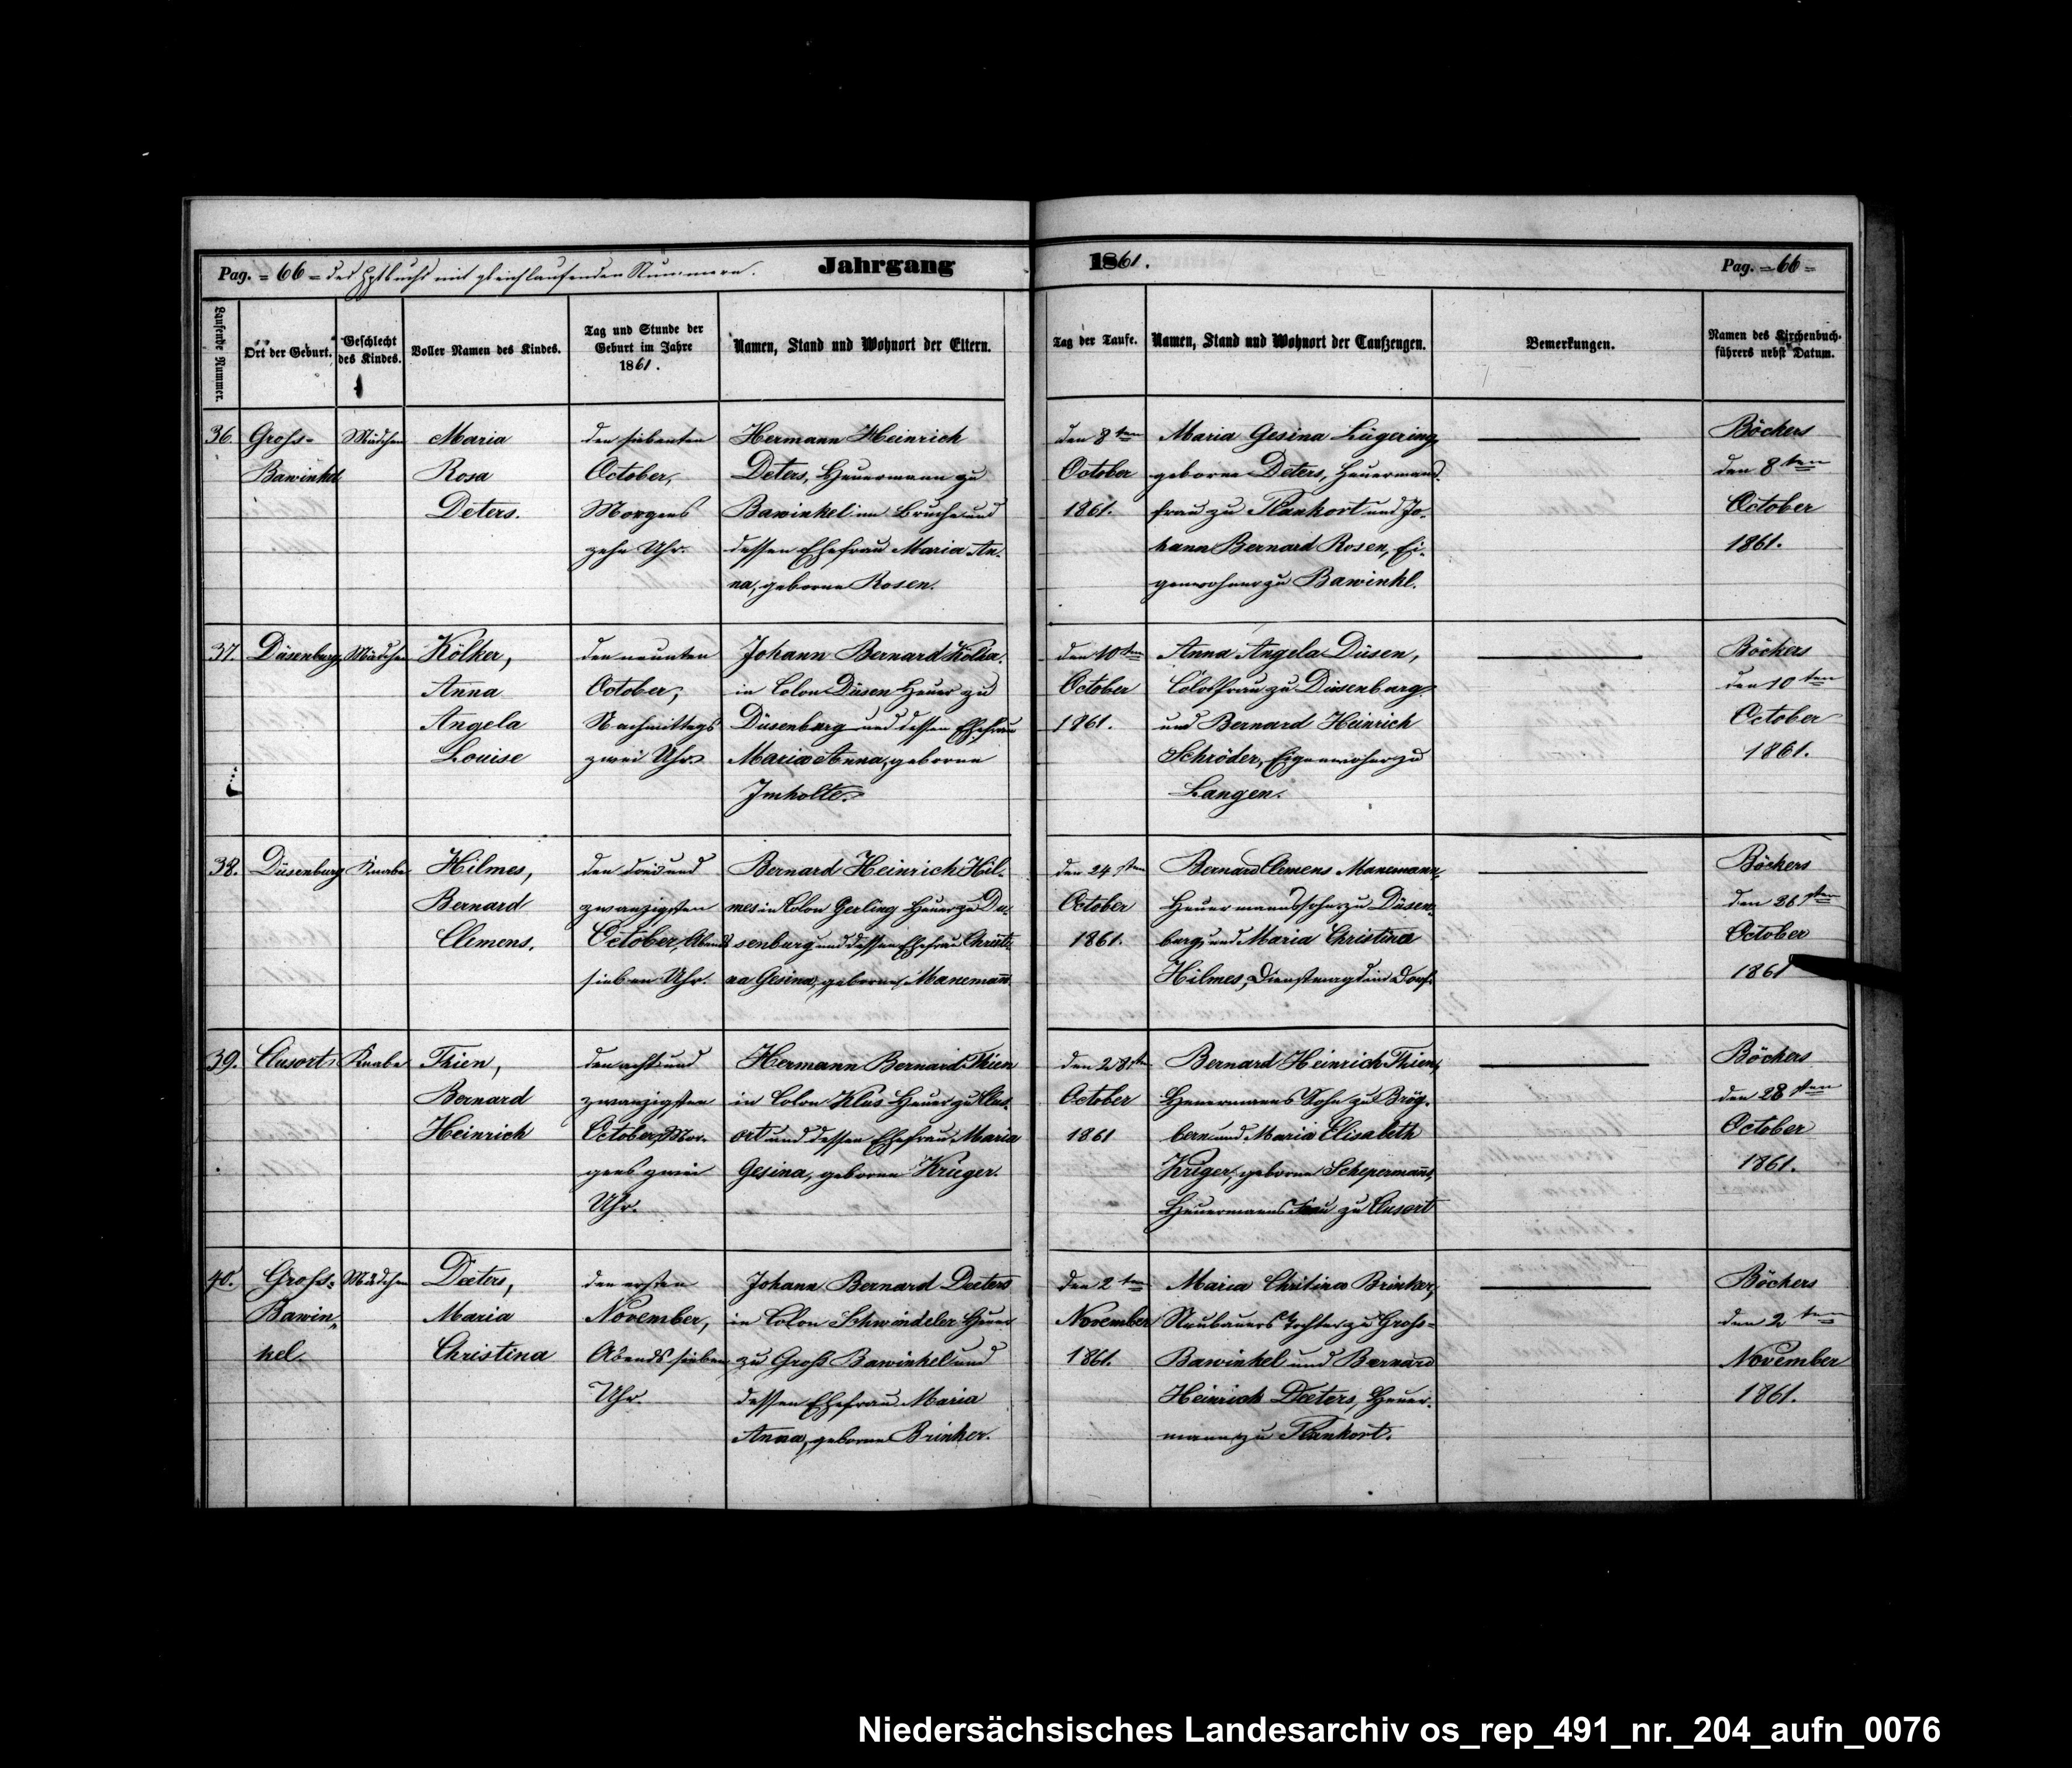 Pag. = 66 = des Hptbuchs mit gleichlaufenden Nummern.
Jahrgang
1861.
Pag. = 66 =
Laufende Nummer.
Ort der Geburt.
Geschlecht
des Kindes.
Voller Namen des Kindes.
Tag und Stunde der
Geburt im Jahre
1861.
Namen, Stand und Wohnort der Eltern.
Tag der Taufe.
Namen, Stand und Wohnort der Taufzeugen.
Bemerkungen.
Namen des Kirchenbuch-
führers nebst Datum.
36.
Gross-
Bawinkel
Mädchen
Maria
Rosa
Deters.
den siebenten
October,
Morgens
zehn Uhr.
Hermann Heinrich
Deters, Heuermann zu
Bawinkel im Bruche und
dessen Ehefrau Maria An-
na, geborne Rosen.
den 8ten
October
1861.
Maria Gesina Lügering,
geborne Deters, Heuermanns-
frau zu Plankort und Jo-
hann Bernard Rosen, Ei-
genwohner zu Bawinkl.
Böckers
den 8ten
October
1861.
37.
Düsenburg
Mädchen
Kölker,
Anna
Angela
Louise
den neunten
October,
Nachmittags
zwei Uhr.
Johann Bernard Kölker
in Colon Düsen Heuer zu
Düsenburg und dessen Ehefrau
Maria Anna, geborne
Imholte.
den 10ten
October
1861.
Anna Angela Düsen,
Colonsfrau zu Düsenburg
und Bernard Heinrich
Schröder, Eigenwohner zu
Langen.
Böckers
den 10ten
October
1861.
38.
Düsenburg
Knabe
Hilmes,
Bernard
Clemens.
den drei und
zwanzigsten
October, Abends
sieben Uhr.
Bernard Heinrich Hil-
mes in Colon Gerling Heuer zu Dü-
senburg und dessen Ehefrau Christi-
na Gesina, geborne Manemann
den 24sten
October
1861.
Bernard Clemens Manemann,
Heuermannssohn zu Düsen-
burg, und Maria Christina
Hilmes, Dienstmagd im Dorf.
Böckers
den 26sten
October
1861
39.
Clusorth
Knabe
Thien,
Bernard
Heinrich
den acht und
zwanzigsten
October, Mor-
gens zwei
Uhr.
Hermann Bernard Thien
in Colon Klus Heuer zu Clus-
ort und dessen Ehefrau Maria
Gesina, geborne Krüger.
den 28sten
October
1861
Bernard Heinrich Thien,
Heuermanns Sohn zu Brög-
bern und Maria Elisabeth
Krüger, geborne Schepermann,
Heuermanns Frau zu Clusort
Böckers
den 28sten
October
1861.
40.
Gross-
Bawin-
kel.
Mädchen
Deeters,
Maria
Christina
den ersten
November,
Abends sieben
Uhr.
Johann Bernard Deeters
in Colon Schwindeler Heuer
zu Gross Bawinkel und
dessen Ehefrau Maria
Anna, geborne Brinker.
den 2ten
November
1861.
Maria Chritina Brinker,
Neubauers Tochter zu Gross-
Bawinkel und Bernard
Heinrich Deeters, Heuer-
mann zu Plankort.
Böckers
den 2ten
November
1861.
Niedersächsisches Landesarchiv os_rep_491_nr._204_aufn_0076